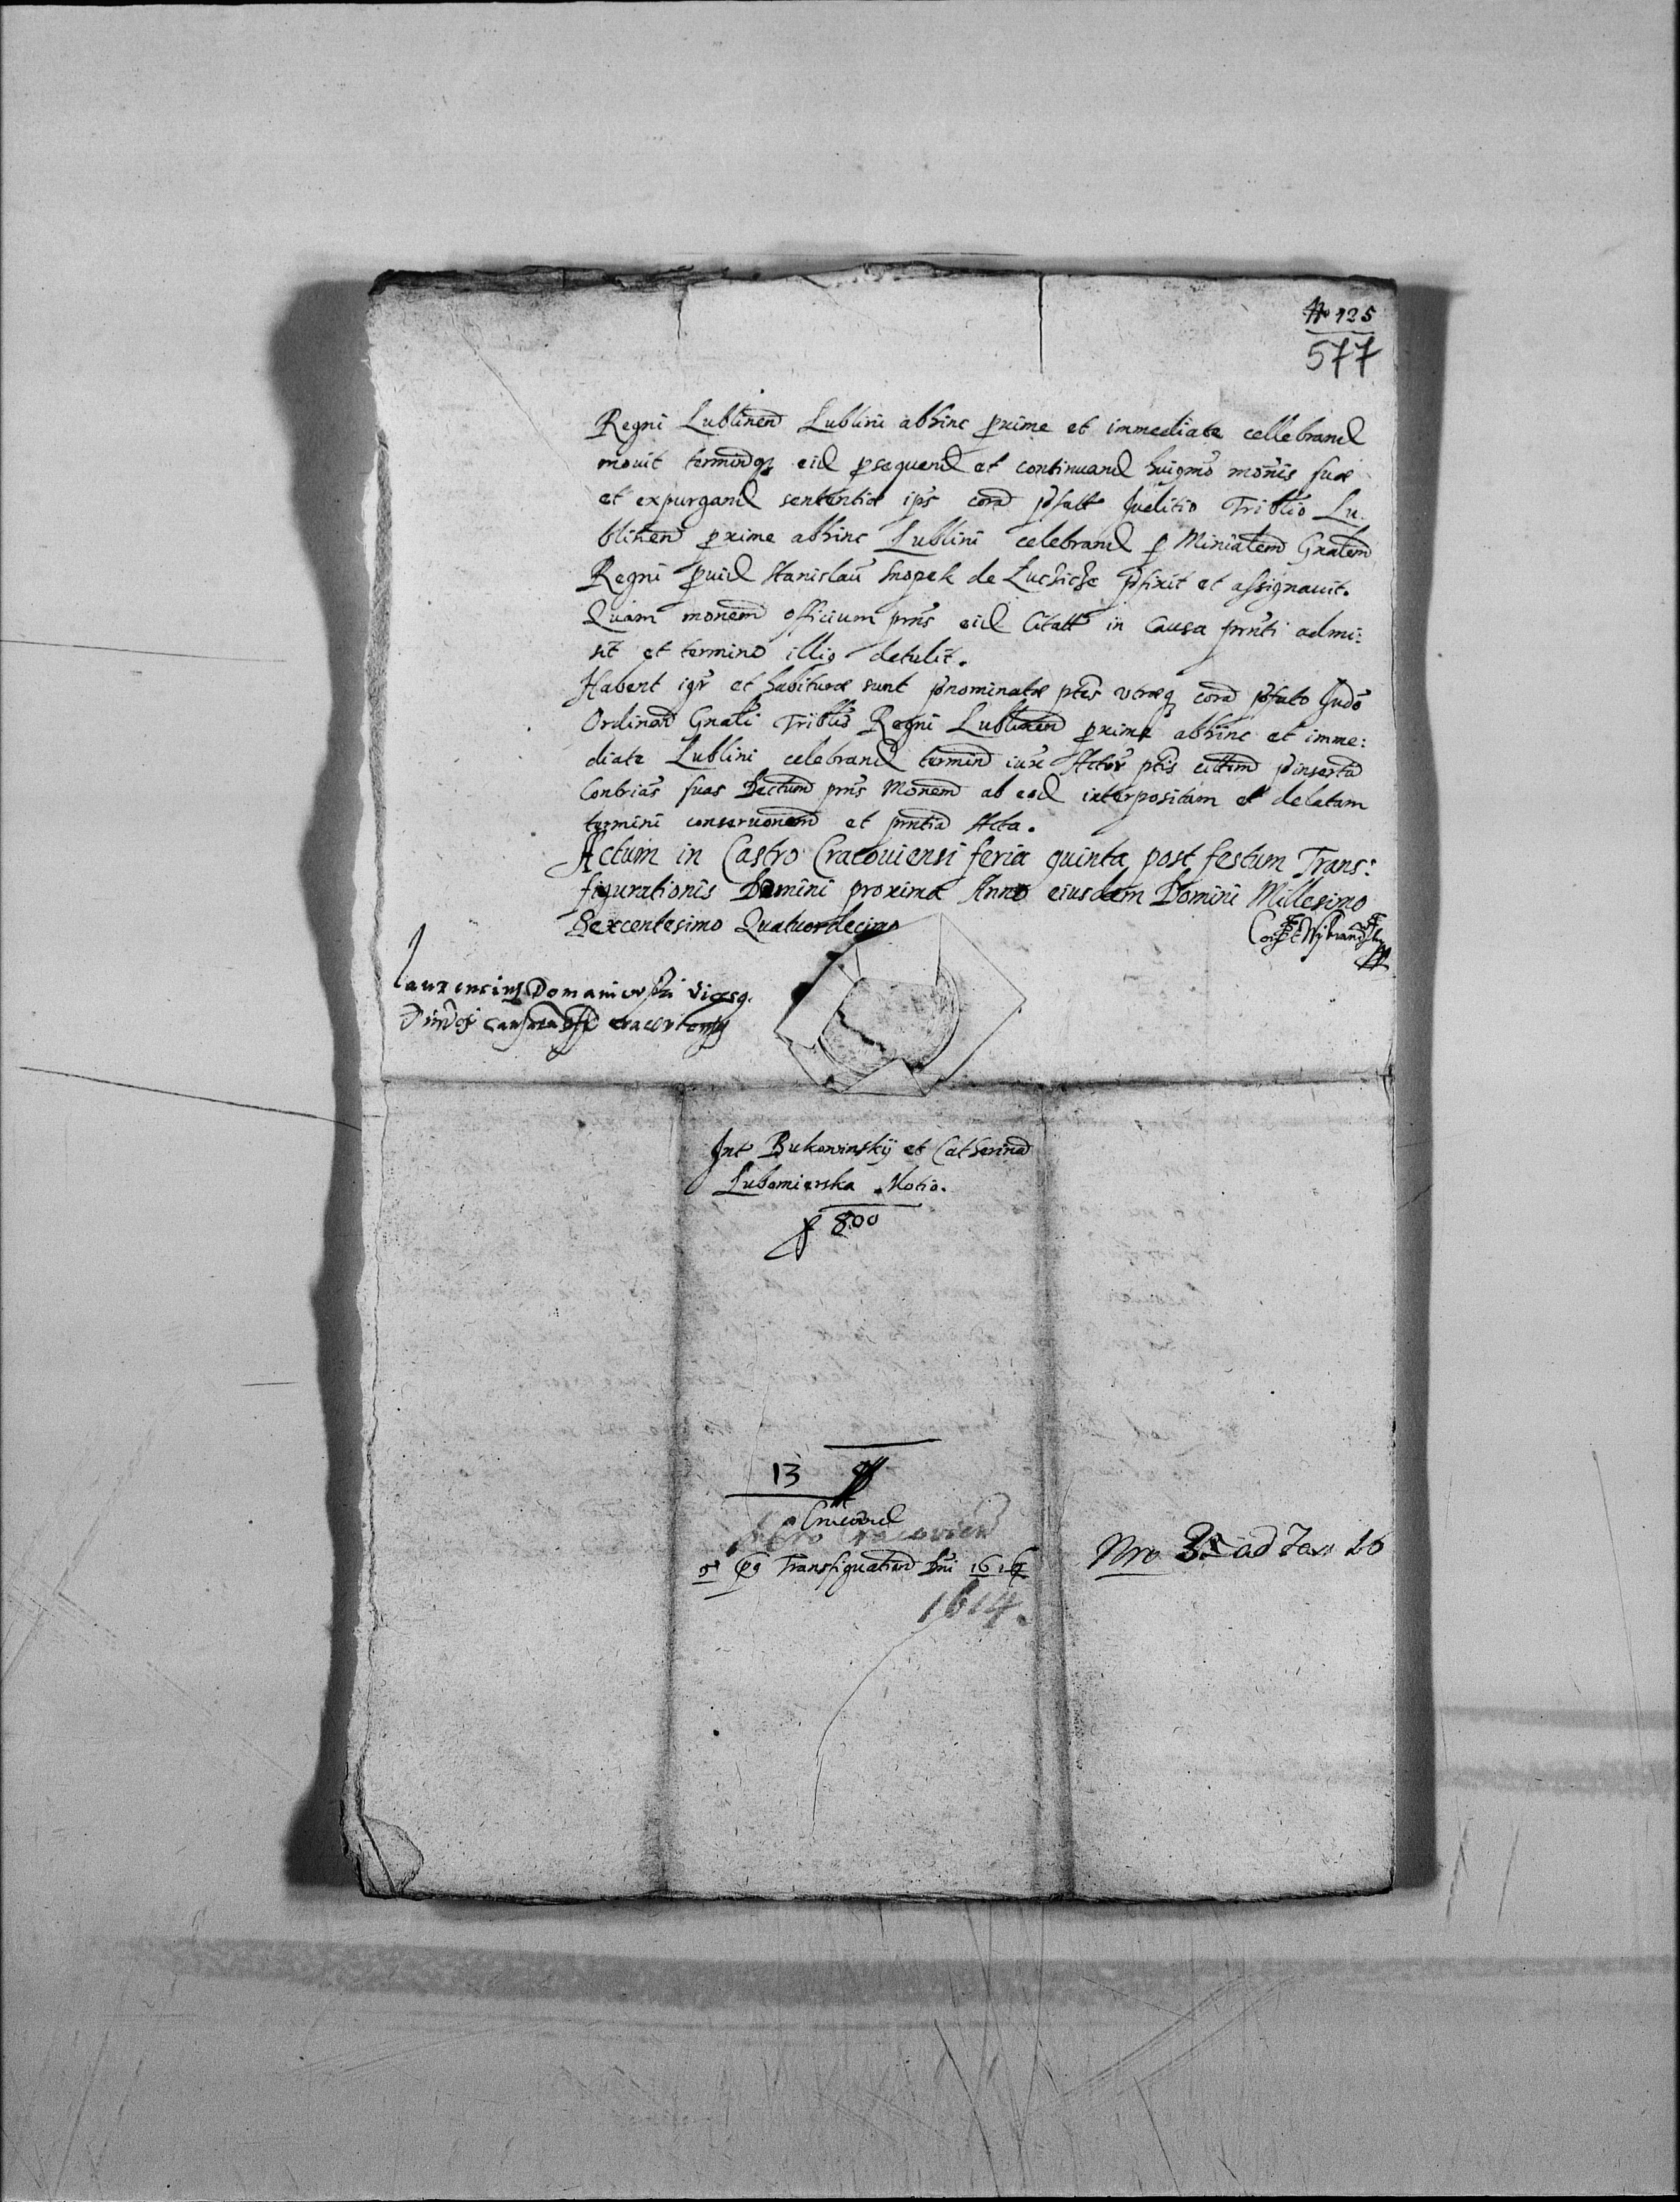 No 125
577
Regni Lublinen Lublini abhinc pxime et immediate cellebrand
mouit terminoq eid psequend et continuand huigmo monis suæ
et expurgand sententiæ ips cora pfatt Juditio Triblio Lu.
blinen pxime abhinc Lublini celebrand p Miniatem Gnalem
Regni puid Stanislau Snopek de Luchicze pfixit et assignauit.
Quam monem officium pns eid Citatt in Causa pnti admi:
sit et termino illiq detulit.
Habent igr et habituræ sunt pnominatæ ptes utræq cora pfato Judo
Ordinar Gnali Triblis Regni Lublinen pxime abhinc et imme:
diate Lublini celebrand termin iuxe Actor ptis citem pinserta
Contrias suas Dectum pns Monem ab eod interpositam et delatam
termini conseruonem et pntia Acta.
Actum in Castro Cracouiensi feria quinta post festum Trans:
figurationis Domini proxima Anno eiusdem Domini Millesimo
Sexcentesimo Quatuordecimo
Laurencius Domaniewski vicesg.
Int Bukowinskÿ et Catherina
Lubomierska Motio.
f 800
13
Cracouied
Castro Cracovien
5 pq Transfiguation Dni 1614
1614.
Nro 35 ad Fasc 26